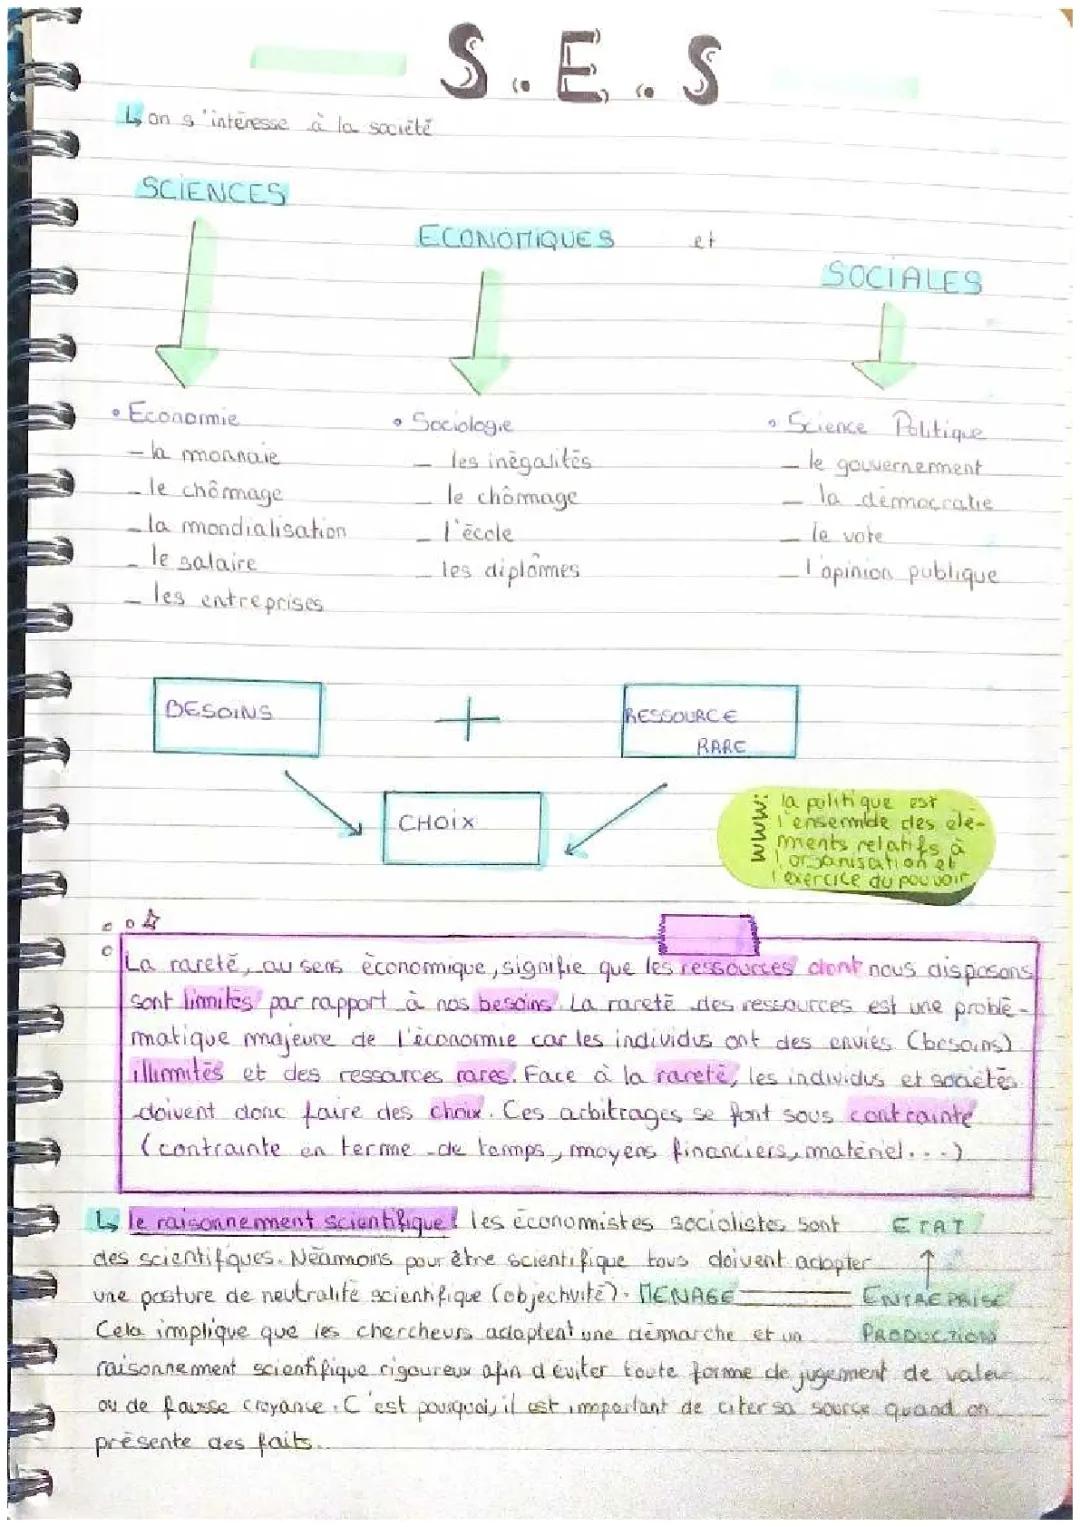 S.E.S
↳ on s'intéresse à la société
SCIENCES
ECONOMIQUES et
SOCIALES
• Economie
- la monnaie
- le chômage
- la mondialisation
- le salaire
- les entreprises
• Sociologie
- les inégalités
- le chômage
- l'école
- les diplômes
• Science Politique
- le gouvernement
- la démocratie
- le vote
- l'opinion publique
BESOINS
+
RESSOURCE
RARE
CHOIX
la politique est
l'ensemble des élé-
ments relatifs à
l'organisation et
l'exercice du pouvoir
La rareté, au sens économique, signifie que les ressources dont nous disposons
sont limités par rapport à nos besoins. La rareté des ressources est une problé-
matique majeure de l'économie car les individus ont des envies (besoins)
illimités et des ressources rares. Face à la rareté, les individus et sociétés
doivent donc faire des choix. Ces arbitrages se font sous contrainte
(contrainte en terme de temps, moyens financiers, matériel...)
↳ le raisonnement scientifique : les économistes socialistes sont
des scientifiques. Néamoins pour être scientifique tous doivent adopter
une posture de neutralité scientifique (objectivité).
Cela implique que les chercheurs adoptent une démarche et un
raisonnement scientifique rigoureux afin d'éviter toute forme de jugement de valeur
ou de fausse croyance. C'est pourquoi, il est important de citer sa source quand on
présente des faits.
ETAT
MENAGE
ENTREPRISE
PRODUCTION